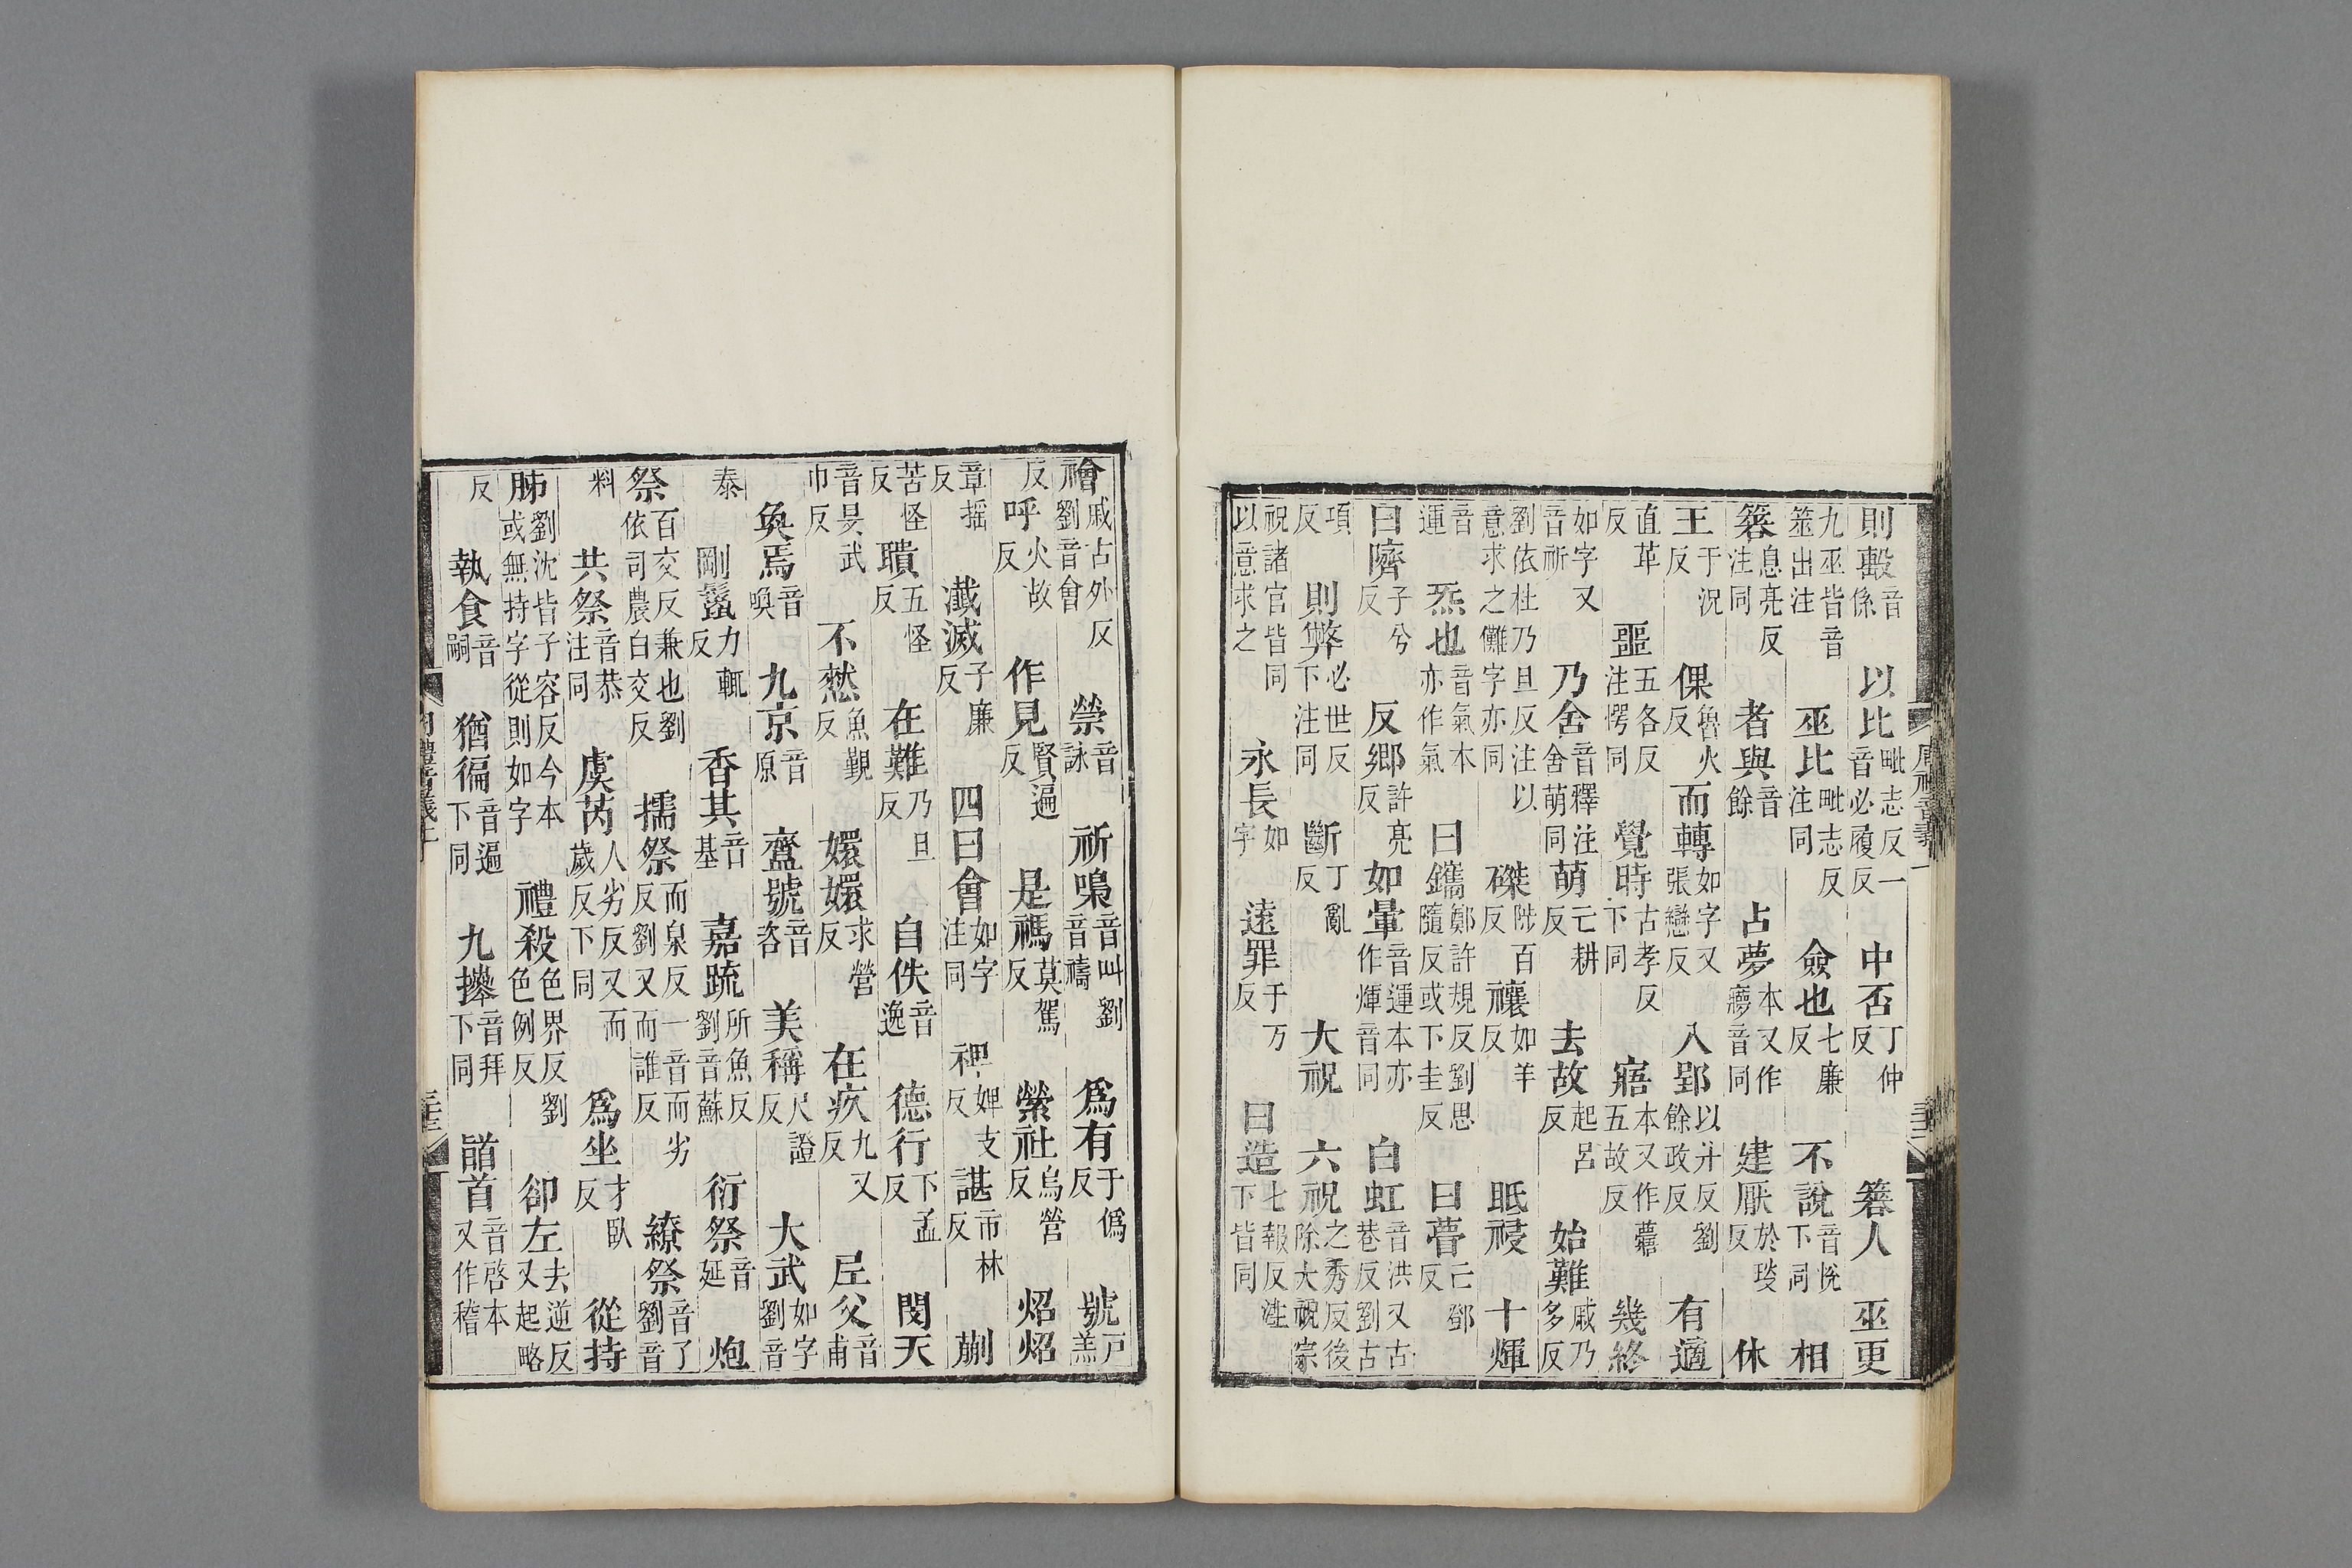 則轚音係 以比毗志反一音必履反 中否丁仲反 簭人 巫更
九巫皆音筮出注 巫比毗志反注同 僉也七廉反 不說音悅下同 相
簭息亮反注同 者與音餘 占夢本又作㝱音同 建厭於琰反 休
王于況反 倮魯火反 而轉如字又張戀反 入郢以井反劉餘政反 有適
直革反 噩五各反注愕同 覺時古孝反下同 寤本又作㝥五故反 幾終
如字又音祈 乃舍音釋注舍萌同 萌亡耕反 去故起呂反 始難戚乃多反
劉依杜乃旦反注以意求之儺字亦同 磔陟百反 禳如羊反 眡祲 十煇
音運 炁也音氣本亦作氣 曰鑴鄭許規反劉思隨反或下圭反 曰瞢亡鄧反
曰隮子兮反 反鄉許亮反 如暈音運本亦作煇音同 白虹音洪又古巷反劉古
項反 則弊必世反下注同 斷丁亂反 大祝 六祝之秀反後除大祝宗
祝諸官皆同以意求之 永長如字 遠罪于万反 曰造七報反注下皆同
周禮音義上
禬戚古外反劉音會 禜音詠 祈嘄音叫劉音禱 爲有于僞反 號戶羔
反 呼火故反 作見賢遍反 是禡莫駕反 縈社烏營反 炤炤
章摇反 瀸滅子廉反 四曰會如字注同 裨婢支反 諶市林反 蒯
苦怪反 聵五怪反 在難乃旦反 自佚音逸 德行下孟反 閔天
音旻武巾反 不憖魚覲反 嬛嬛求營反 在疚九又反 尼父音甫
奐焉音喚 九京音原 齍號音咨 美稱尺證反 大武如字劉音
泰 剛鬣力輒反 香萁音基 嘉疏所魚反劉音蘇 衍祭音延 炮
祭百交反兼也劉依司農白交反 擩祭而泉反一音而劣反劉又而誰反 繚祭音了劉音
料 共祭音恭注同 虞芮人劣反又而歲反下同 爲坐才臥反 從持
胏劉沈皆子容反今本或無持字從則如字 禮殺色界反劉色例反 卻左去逆反又起略
反 執食音嗣 猶徧音遍下同 九𢷎音拜下同 䭫首音啓本又作稽
周禮音義上